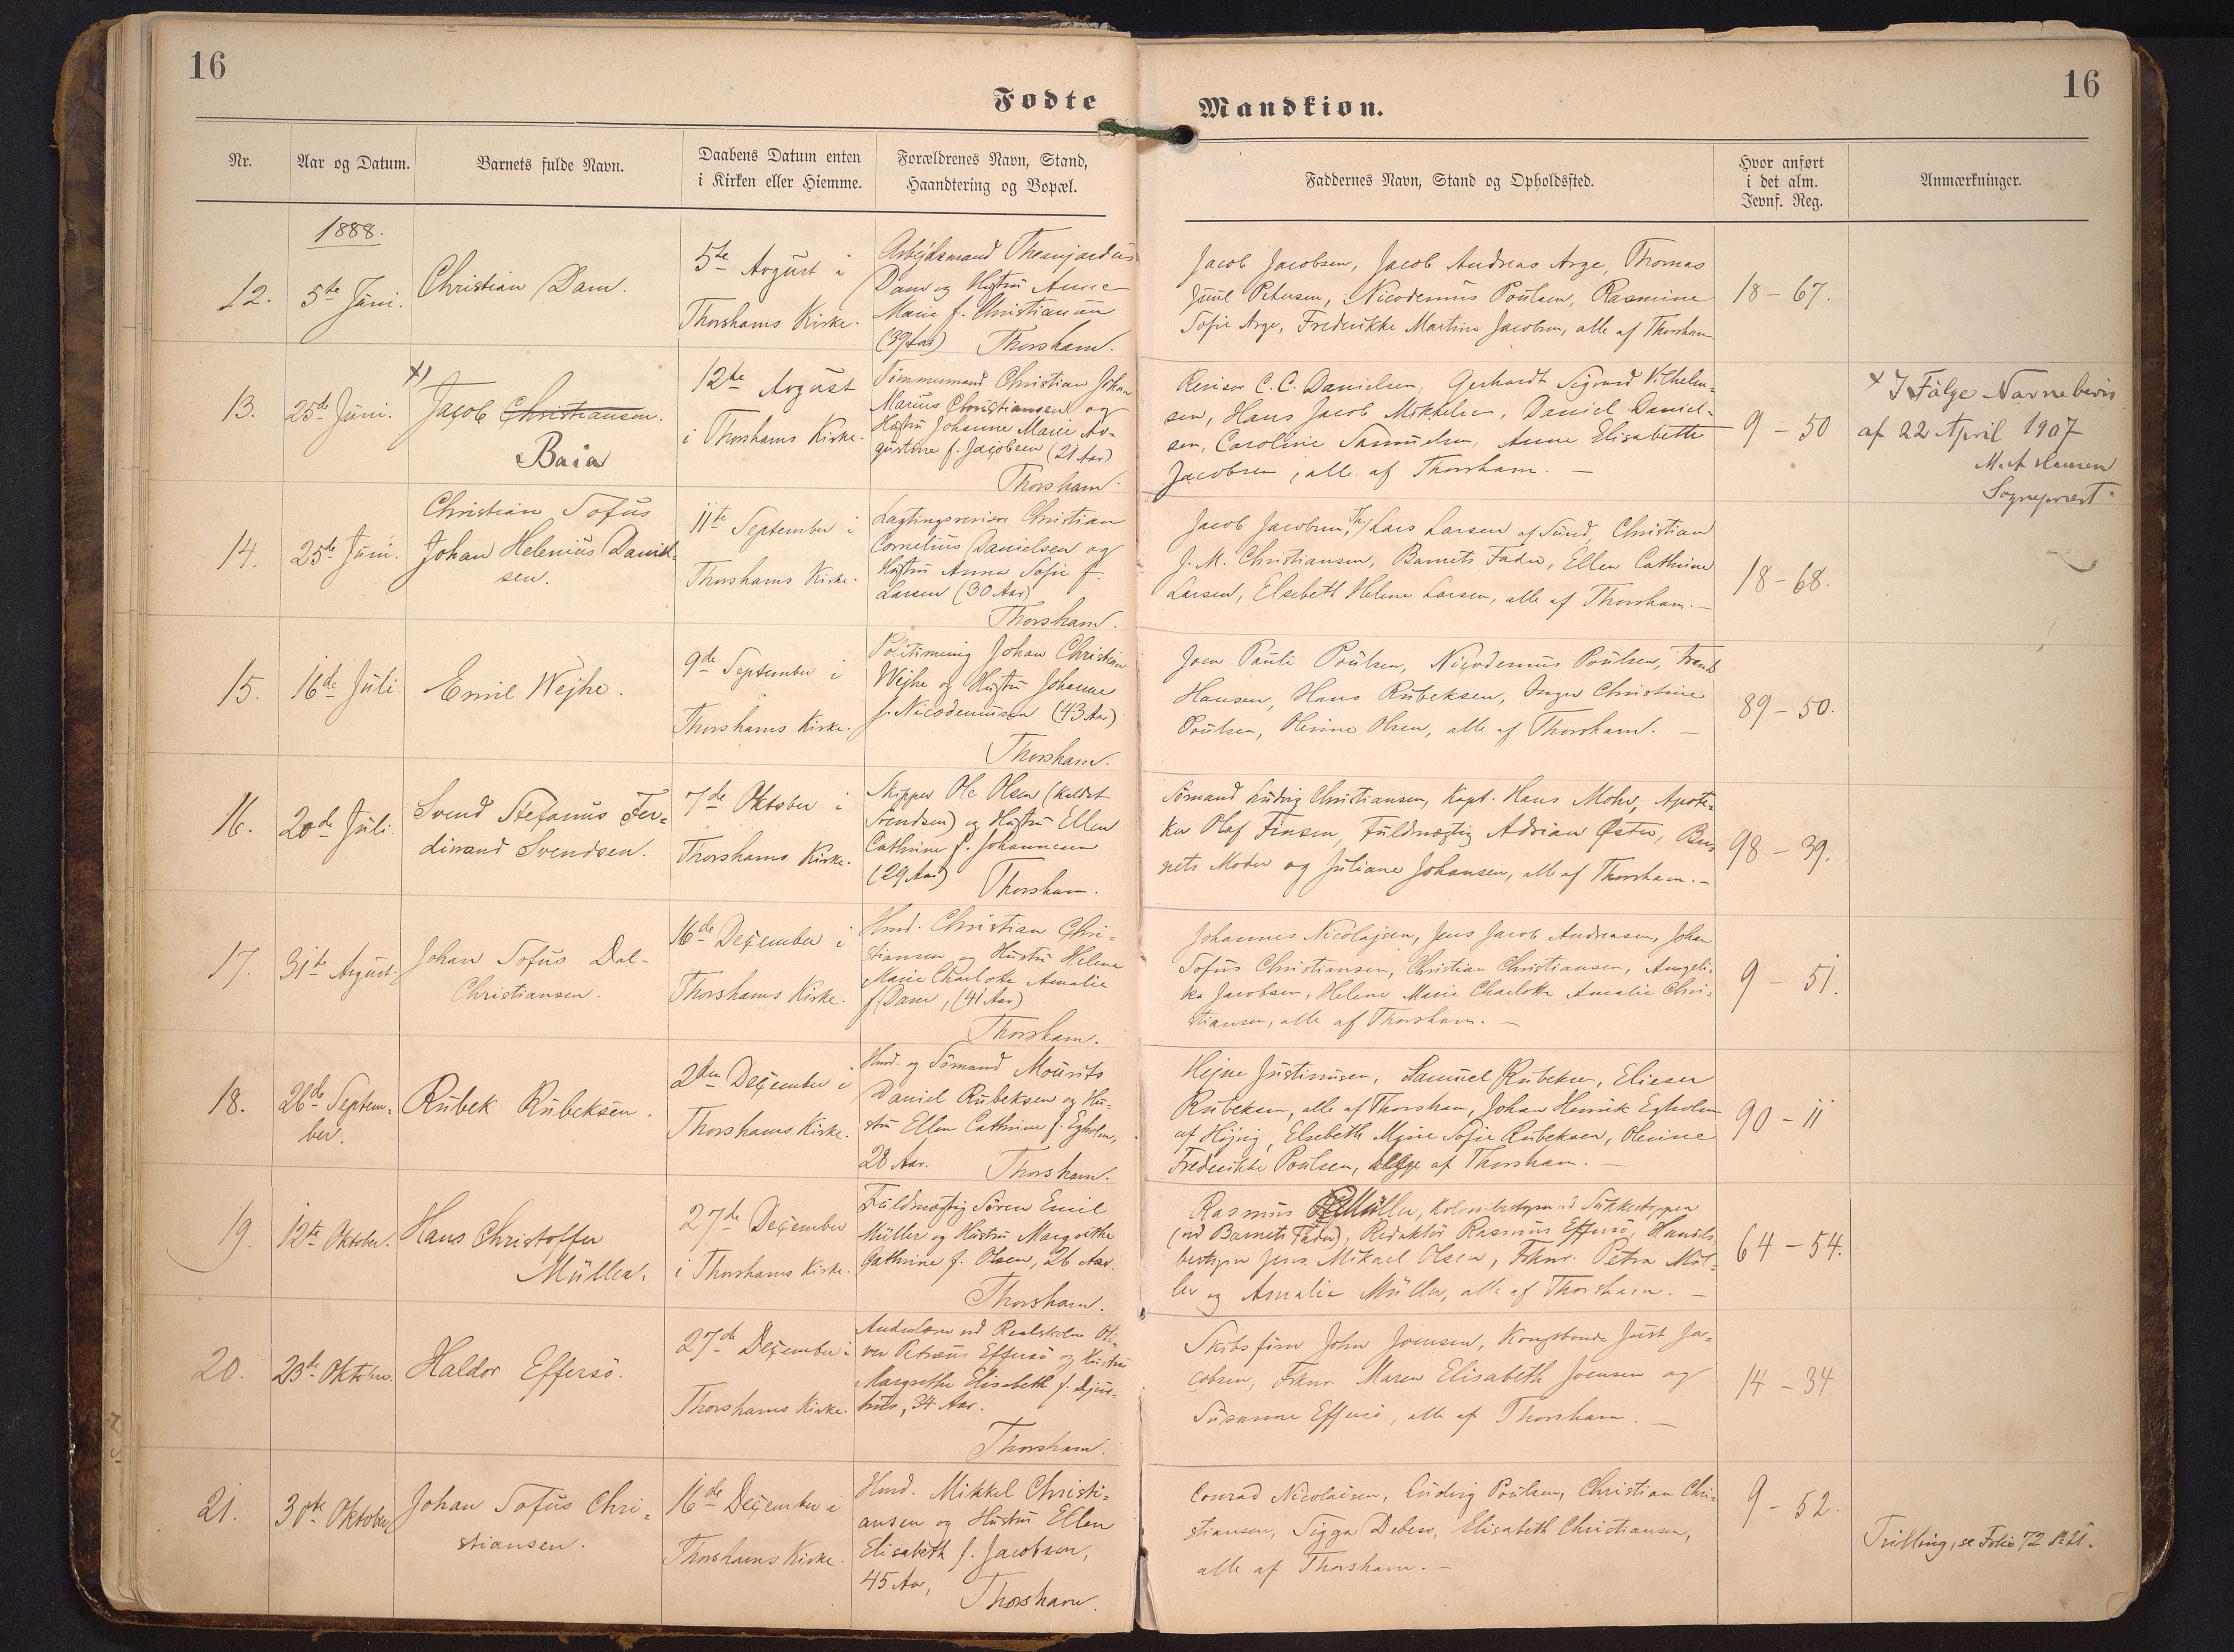 16
16
Fødte
Mandkiøn.
Nr.
Aar og Datum.
Barnets fulde Navn.
Daabens Datum enten
i Kirken eller Hiemme.
Forældrenes Navn, Stand,
Haandtering og Bopæl.
Faddernes Navn, Stand og Opholdssted.
Hvor anført
i det alm.
Jevnf. Reg.
Anmærkninger.
1888.
12.
5te Juni.
Christian Dam.
5te August i
Thorshavns Kirke.
Arbejdsmand
Dam og Hustru Anne
Marie f. Christiansen
(39 Aar) Thorshavn.
Jacob Jacobsen, Jacob Andreas Arge, Thomas
Juul Petersen, Nicodemus Poulsen, Rasmine
Sofie Arge, Frederikke Martine Jacobsen, alle af Thorshavn
18 – 67.
13.
25de Juni.
x) Jacob Christiansen.
Baia
12te August
i Thorshavns Kirke.
Tømmermand Christian Johan
Marius Christiansen og
Hustru Johanne Marie Au-
gustine f. Jacobsen (21 Aar)
Thorshavn.
Revisor C. C. Danielsen, Gerhardt Sigvard Vilhelm-
sen, Hans Jacob Mikkelsen, Daniel Daniel-
sen, Caroline Samuelsen, Anne Elisabeth
Jacobsen, alle af Thorshavn. –
9 – 50
x I Følge Navnebevis
af 22 April 1907
Sognepræst.
14.
25de Juni.
Christian Sofus
Johan Helenius Daniel-
sen.
11te September i
Thorshavns Kirke.
Lagtingsrevisor Christian
Cornelius Danielsen og
Hustru Anna Sofie f.
Larsen (30 Aar)
Thorshavn.
Jacob Jacobsen, Th./ Lars Larsen af Sund, Christian
J. M. Christiansen, Barnets Fader, Ellen Cathrine
Larsen, Elsebeth Helene Larsen, alle af Thorshavn. –
18 – 68.
15.
16de Juli.
Emil Wejhe.
9de September i
Thorshavns Kirke.
Politimenig Johan Christian
Wejhe og Hustru Johanne
f. Nicodemusen (43 Aar)
Thorshavn.
Joen Pauli Poulsen, Nicodemus Poulsen, Frants
Hansen, Hans Rubeksen, Inger Christine
Poulsen, Olevine Olsen, alle af Thorshavn. –
89 – 50.
16.
20de Juli.
Svend Stefanus Fer-
dinand Svendsen.
7de Oktober i
Thorshavns Kirke.
Skipper Ole Olsen (kaldet
Svendsen) og Hustru Ellen
Cathrine f. Johannesen
(29 Aar) Thorshavn.
Sømand Ludvig Christiansen, Kapt. Hans Mohr, Apote-
ker Olaf Finsen, Fuldmægtig Adrian Øster, Bar-
nets Moder og Juliane Johansen, alle af Thorshavn. –
98 – 39.
17.
31te August.
Johan Sofus Dal-
Christiansen.
16de December i
Thorshavns Kirke.
Hmd. Christian Chri-
stiansen og Hustru Helene
Marie Charlotte Amalie
f. Dam, (41 Aar)
Thorshavn.
Johannes Nicolajsen, Jens Jacob Andreasen, Johan
Sofus Christiansen, Christian Christiansen, Angeli-
ka Jacobsen, Helene Marie Charlotte Amalie Chri-
stiansen, alle af Thorshavn. –
9 – 51.
18.
26de Septem-
ber.
Rubek Rubeksen.
2den December i
Thorshavns Kirke.
Hmd. og Sømand Mourits
Daniel Rubeksen og Hu-
stru Ellen Cathrine f. Egholm,
28 Aar. Thorshavn.
Hejne Justinusen, Samuel Rubeksen, Elieser
Rubeksen, alle af Thorshavn, Johan Henrik Egholm
af Hojvig, Elsebeth Sofie Rubeksen, Olevine
Frederikke Poulsen, af Thorshavn. –
90 – 11
19.
12te Oktober.
Hans Christoffer
Müller.
27de December
i Thorshavns Kirke.
Fuldmægtig Søren Emil
Müller og Hustru Margrethe
Cathrine f. Olsen, 26 Aar.
Thorshavn.
Rasmus Müller, Kolonibestyrer ved Sukkertoppen
(ved Barnets Fader), Redaktør Rasmus Effersø, Handels-
bestyrer Jens Mikael Olsen, Frknr. Petra Mül-
ler og Amalie Müller, alle af Thorshavn. –
64 – 54.
20.
23de Oktober.
Haldor Effersö.
27de December i
Thorshavns Kirke.
Andenlærer ved Realskolen Oli-
ver Petræus Effersö og Hustru
Margrethe Elisabeth f. Djur-
huus, 34 Aar.
Thorshavn.
Skibsfører John Joensen, Kongsbonde Just Ja-
cobsen, Frknr. Maren Elisabeth Joensen og
Susanne Effersö, alle af Thorshavn. –
14 – 34.
21.
30te Oktober
Johan Sofus Chri-
stiansen.
16de December i
Thorshavns Kirke.
Hmd. Mikkel Christi-
ansen og Hustru Ellen
Elisabeth f. Jacobsen,
45 Aar, Thorshavn.
Conrad Nicolaisen, Ludvig Poulsen, Christian Chri-
stiansen, Sigga Debess, Elisabeth Christiansen,
alle af Thorshavn. –
9 – 52.
Tvilling, se Folio 72 № 21.